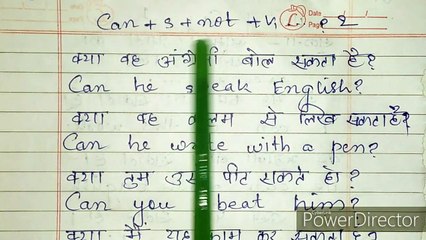 Can + s + not + V₁ ?
Date
Page
क्या वह अंग्रेजी बोल सकता है?
Can he speak English?
क्या वह कलम से लिख सकता है?
Can he write with a pen?
क्या तुम उसे पीट सकते हो?
Can you beat him?
क्या मैं यह काम कर सकता हूँ?
PowerDirector